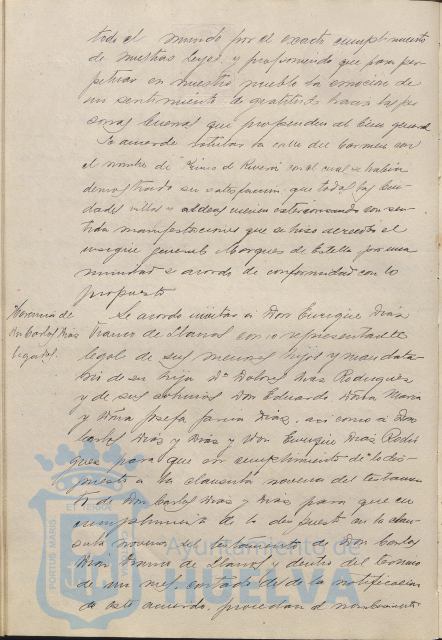 todo el mundo por el exacto cumplimiento
de nuestras leyes, y proponiendo que para per-
petuar en nuestro pueblo la emoción de
un sentimiento de gratitud hacia las per-
sonas buenas que propenden al bien general
Se acuerde titular la calle del Carmen con
el nombre de Primo de Rivera con el cual se habia
demostrado su satisfaccion, que todas las ciu-
dades villas y aldeas vienen exteriorizando con sen-
tida manifestaciones que se hizo acreedor el
insigne general Marques de Estella por una
nimidad se acordo de conformidad con lo
propuesto
Herencia de
Dn Carlos Dias
Legados.
Se acordo invitar a Don Enrique Dias
Franco de Llanos como representante
legal de sus menores hijos y mandata
rio de su hija Dª Dolores Dias Rodriguez
y de sus sobrinos Don Eduardo Maria
y Doña Josefa Garcia Dias, asi como a Don
Carlos Dias y Dias y Don Enrique Dias Rodri
guez para que en cumplimiento de lo dis-
puesto a la clausula novena del testamen
to de Don Carlos Dias y Dias para que en
cumplimiento de lo dispuesto en la clau-
sula novena del testamento de Don Carlos
Dias Franco de Llanos y dentro del termino
de un mes, contado desde la notificacion
de este acuerdo, procedan al nombramiento
PORTUS MARIS
ET TERRÆ
Ayuntamiento de
HUELVA